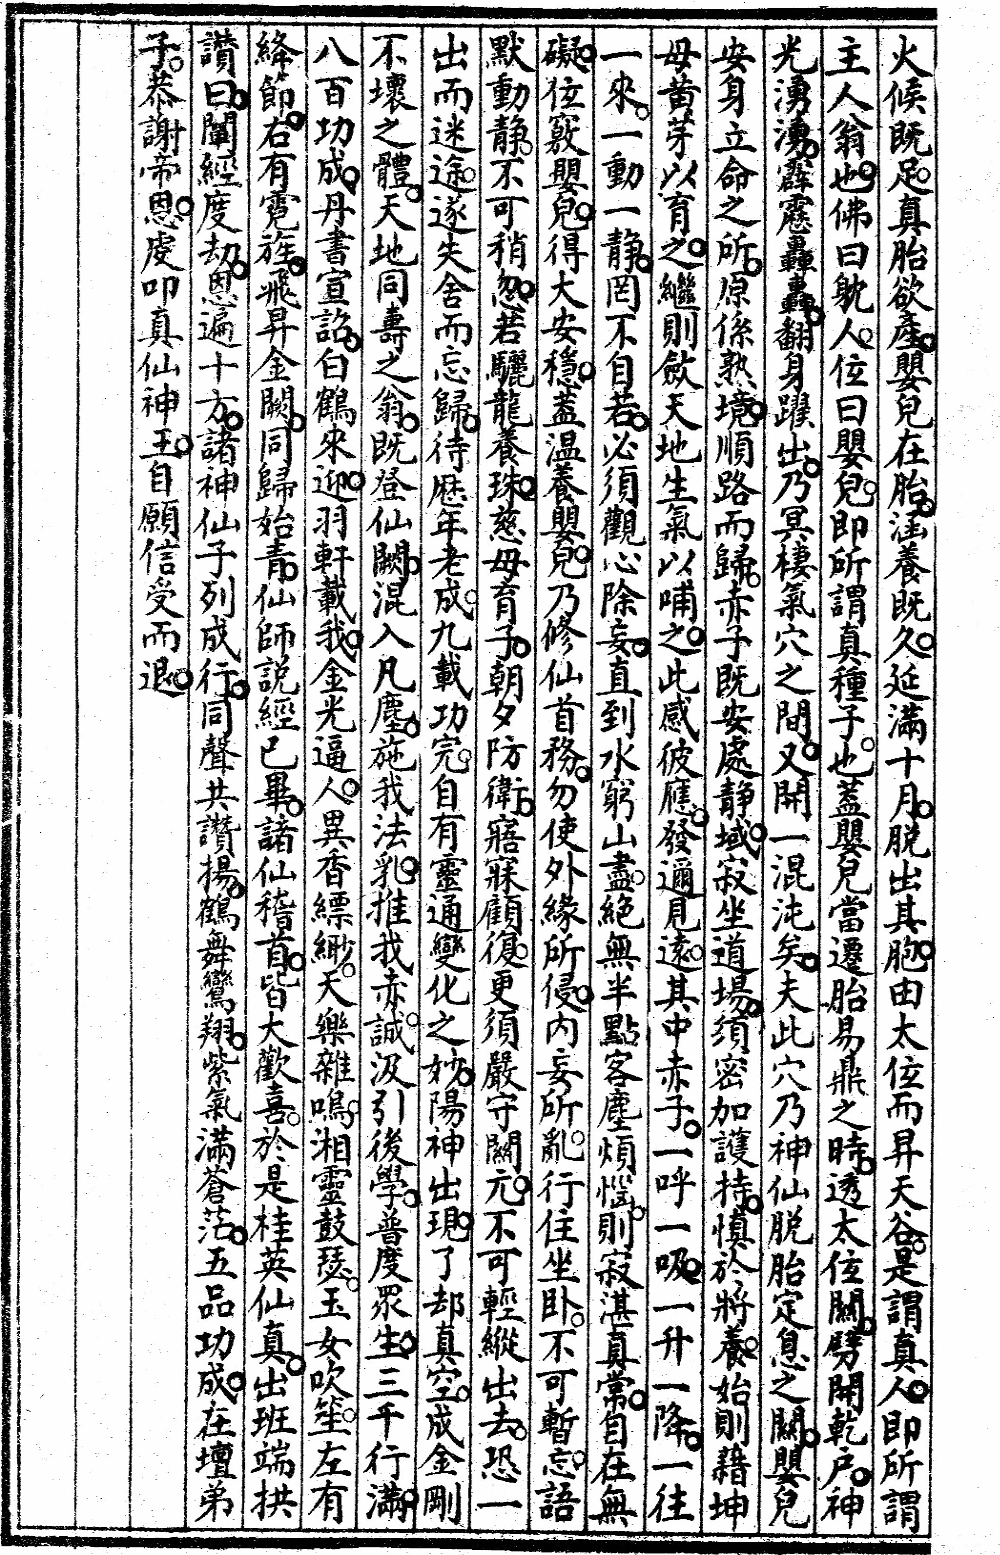 火候既足。真胎欲產。嬰兒在胎。涵養既久。延滿十月。脫出其胞。由太位而昇天谷。是謂真人。即所謂
主人翁也。佛曰躭人。位曰嬰兒。即所謂真種子。也蓋嬰兒當遷胎易鼎之時。透太位關。劈開乾戶。神
光湧湧。霹靂轟轟。翻身躍出。乃冥棲氣穴之間。又開一混沌矣。夫此穴乃神仙脫胎定息之關。嬰兒
安身立命之所。原係熟境。順路而歸。赤子既安處靜域。寂坐道場。須密加護持。慎於將養。始則藉坤
母黃芽以育之。繼則斂天地生氣以哺之。此感彼應。發邇見遠。其中赤子。一呼一吸。一升一降。一往
一來。一動一靜。罔不自若。必須觀心除妄。直到水窮山盡。絕無半點客塵煩惱。則寂湛真常。自在無
礙。位竅嬰兒。得大安穩。蓋溫養嬰兒。乃修仙首務。勿使外緣所侵。內妄所亂。行住坐卧。不可暫忘。語
默動靜。不可稍忽。若驪龍養珠。慈母育子。朝夕防衛。寤寐顧復。更須嚴守關元。不可輕縱出去。恐一
出而迷途。遂失舍而忘歸。待歷年老成。九載功完。自有靈通變化之妙。陽神出現。了却真空。成金剛
不壞之體。天地同壽之翁。既登仙闕。混入凡塵。施我法乳。推我赤誠。汲引後學。普度眾生。三千行滿。
八百功成。丹書宣詔。白鶴來迎。羽軒載我。金光逼人。異香縹緲。天樂雜鳴。湘靈鼓瑟。玉女吹笙。左有
絳節。右有霓旌。飛昇金闕。同歸始青。仙師説經已畢。諸仙稽首。皆大歡喜。於是桂英仙真。出班端拱
讚曰。闡經度劫。恩遍十方。諸神仙子列成行。同聲共讚揚。鶴舞鸞翔。紫氣滿蒼茫。五品功成。在壇弟
子。恭謝帝恩。虔叩真仙神王。自願信受而退。